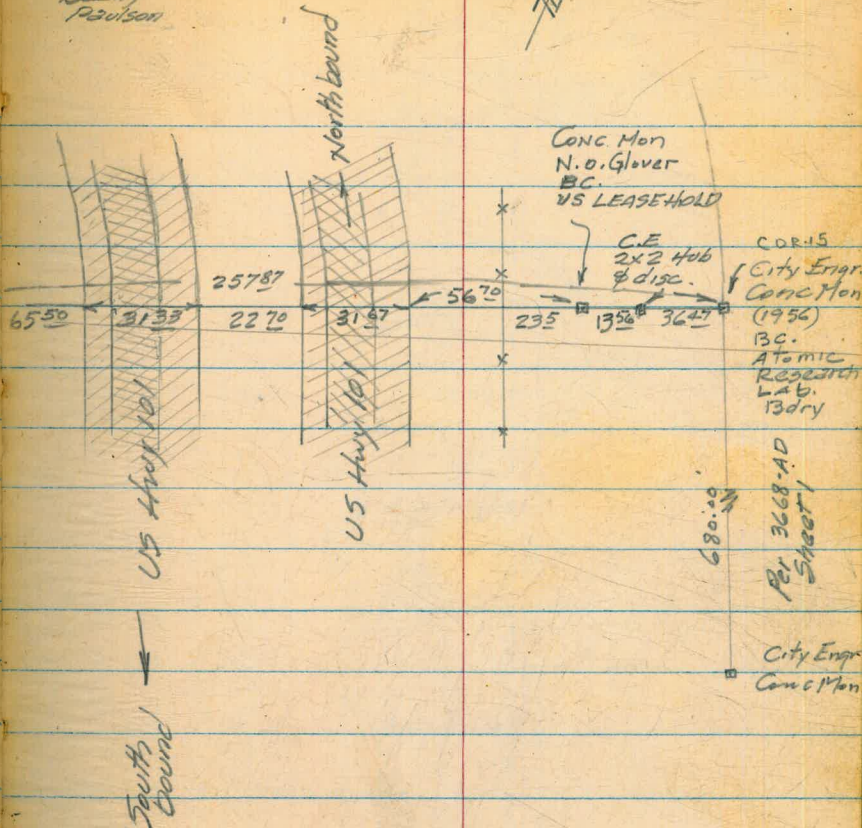 Paulson
North bound
Conc. Mon
N.O. Glover
BC.
US LEASEHOLD
C.E
2x2 Hub
& disc.
COR. 15
City Engr.
Conc Mon
(1956)
BC.
Atomic
Research
Lab.
Bdry
257 87
65 50
31 33
22 70
31 67
56 70
235
13 56
36 47
US Hwy 101
US Hwy 101
680.00
Per 3668-AD
Sheet 1
City Engr
Conc Mon
South
bound